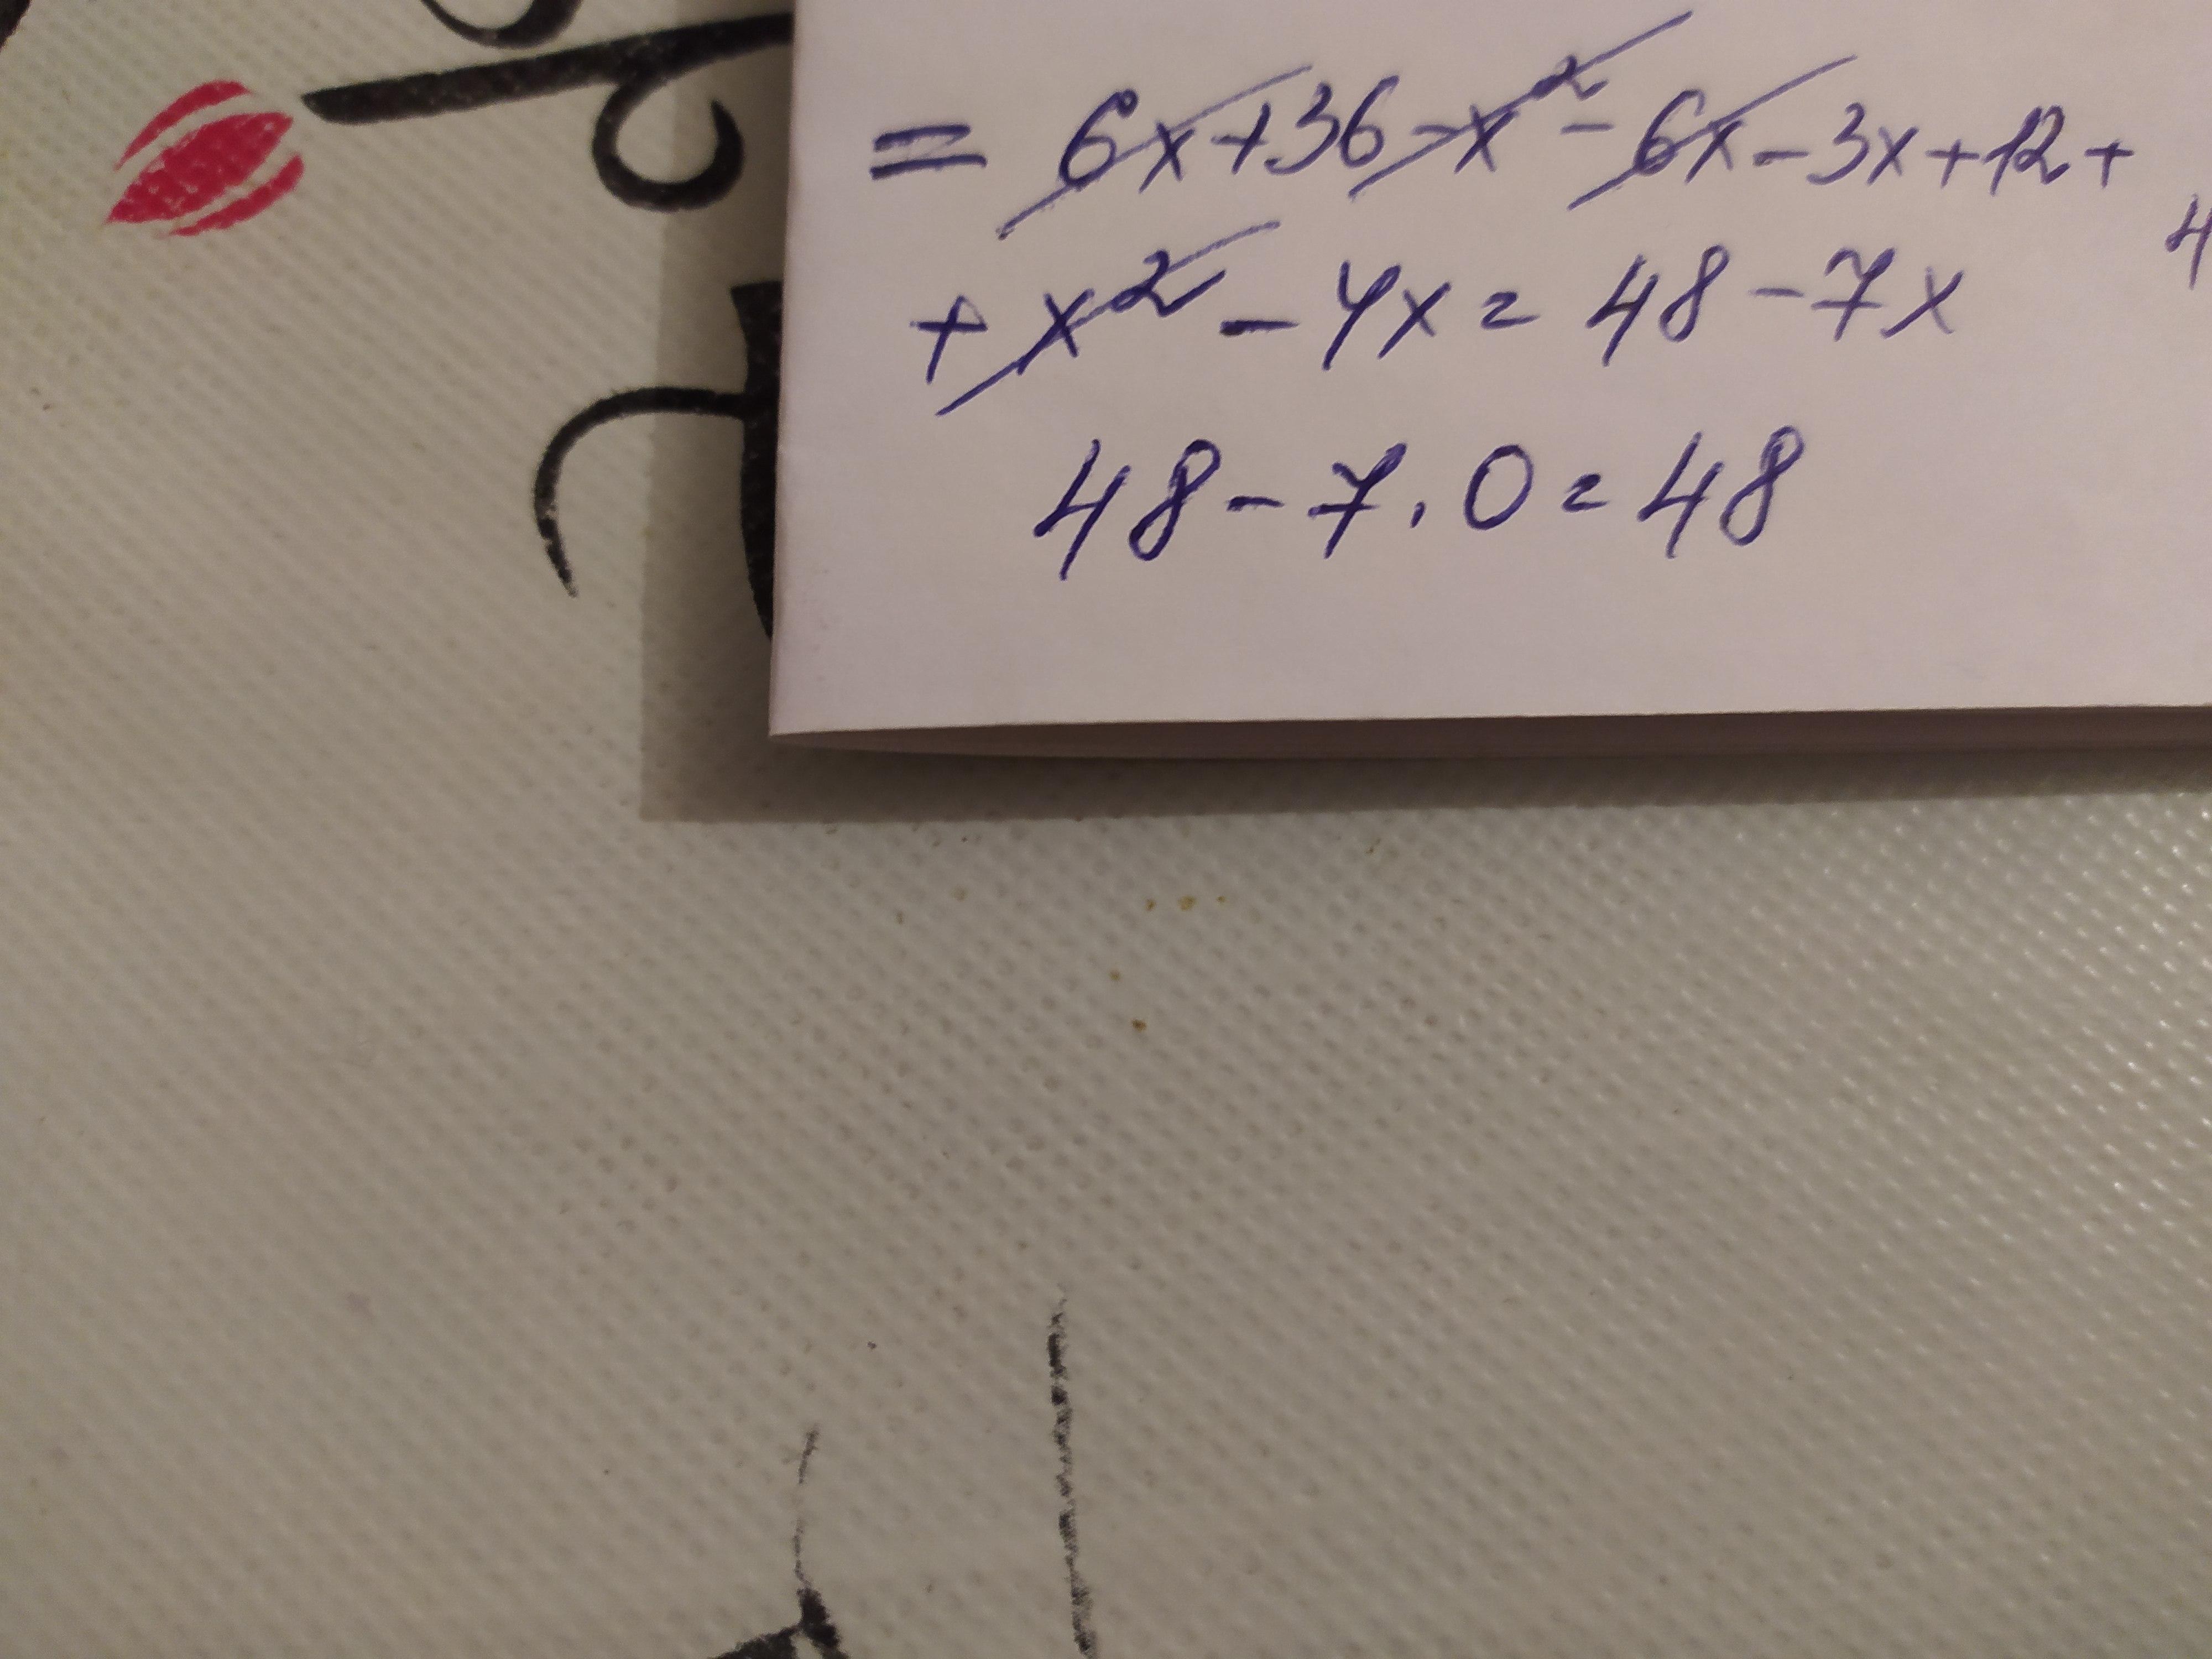 = 6x+36-x²-6x-3x+12+
+x²-4x=48-7x
48-7.0=48